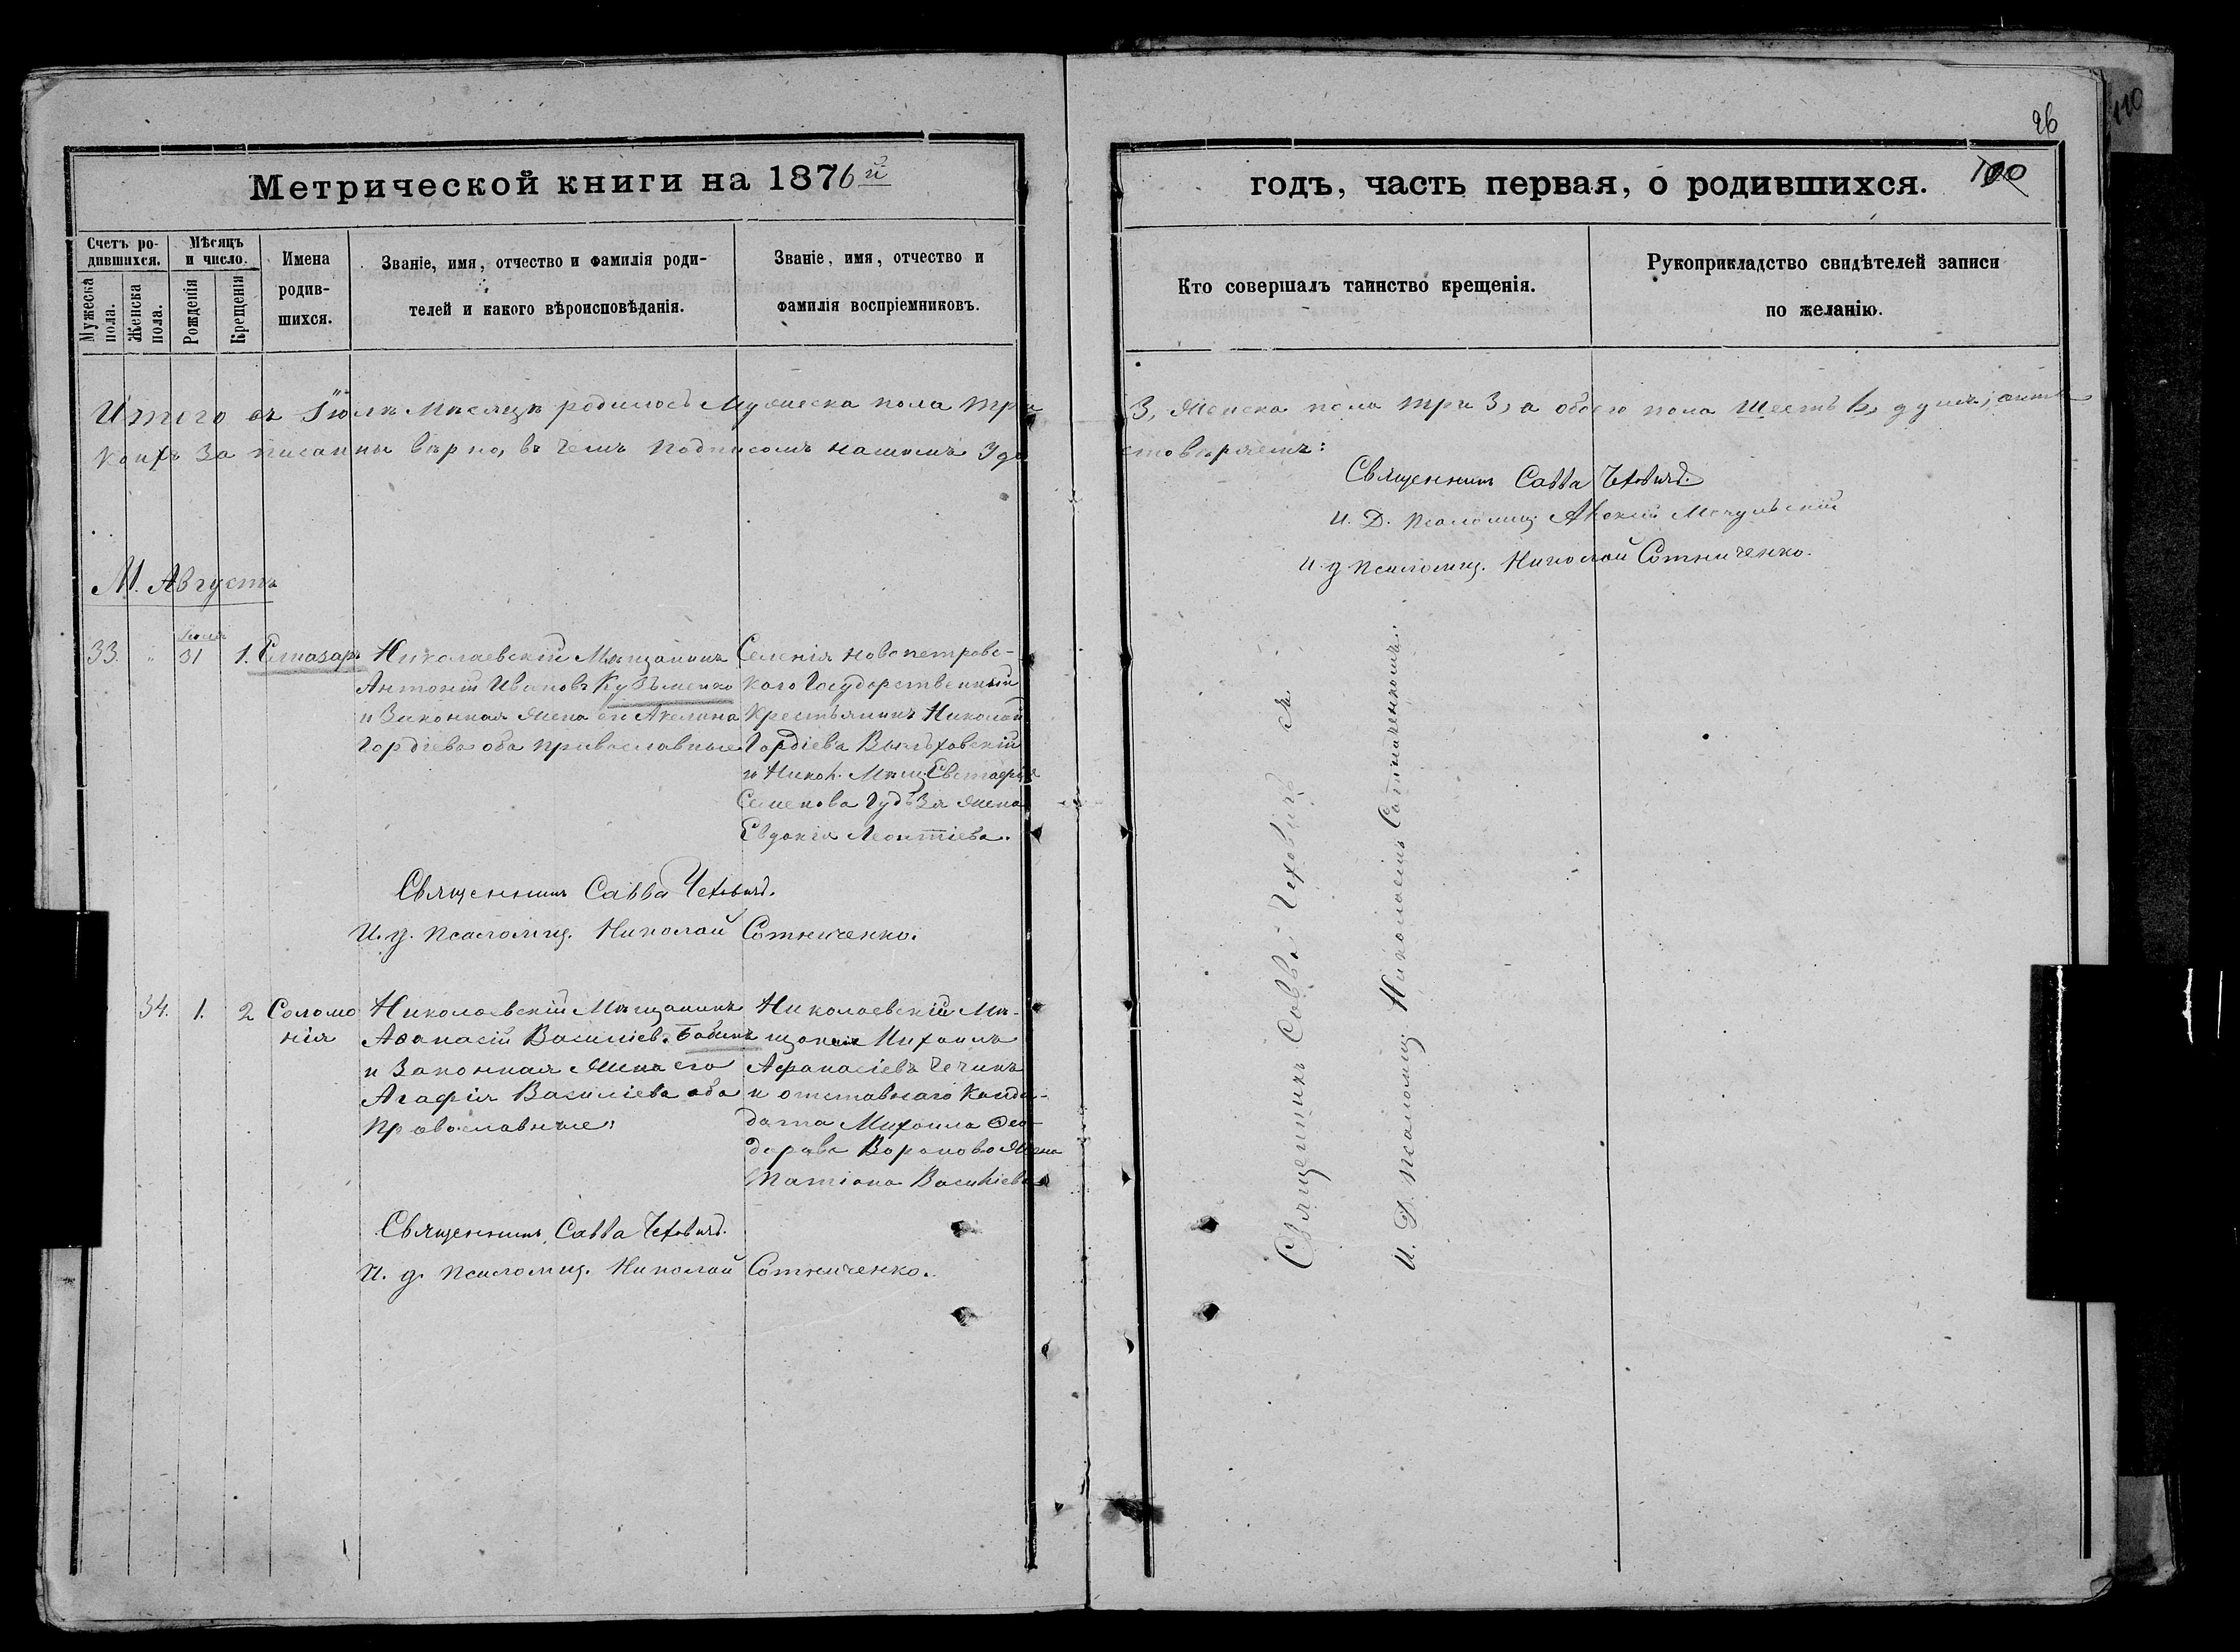 26
110
Метрической книги на 1876й
годъ, часть первая, о родившихся. 100
Счетъ родившихся.
Мужеска пола.
Женска пола.
Мѣсяцъ и число.
Рожденія
Крещенія
Имена родившихся.
Званіе, имя, отчество и фамилія родителей и какого вѣроисповѣданія.
Званіе, имя, отчество и фамилія воспріемниковъ.
Кто совершалъ таинство крещенія.
Рукоприкладство свидѣтелей записи по желанію.
Итого въ Іюлѣ Мѣсяцѣ родилось Мужеска пола три 3, Женска пола три 3, а обоего пола Шесть 6, душъ;
коихъ записанны вѣрно, въ чемъ подписомъ нашимъ Удостовѣряемъ:
Священникъ Савва Чеховичъ.
И. Д. Псаломщ. Мочульскій
И. д. Псаломщ. Николай Сотниченко.
М. Августъ
33. " Іюля 31 1.
Николаевскій Мѣщанинъ
Антоній Ивановъ Кузьменко
и Законная Жена его Акелина
Гордіева оба православные
Селенія Новопетровс-
кого Государственный
Крестьянинъ Николай
Гордіевъ
и Никол. Мѣщ.
Семенова Жена
Евдокія Леонтіева.
Священникъ Савва Чеховичъ.
И. д. Псаломщ. Николай Сотниченко.
34. 1. 2 Соломо
нія
Николаевскій Мѣщанинъ
Аѳанасій Василіевъ Бабинъ
и Законная Жена его
Агафія Василіева оба
православные;
Николаевскій Мѣ-
щанинъ Михаилъ
Афанасіевъ Чечинъ
и отставнаго Канди-
дата Михаила Ѳео-
дорова Воронова Жена
Татіана Василіева
Священникъ Савва Чеховичъ.
И. д. Псаломщ. Николай Сотниченко.
Священникъ Савва Чеховичъ съ
И. Д. Псаломщ. Николаемъ Сотниченкомъ.